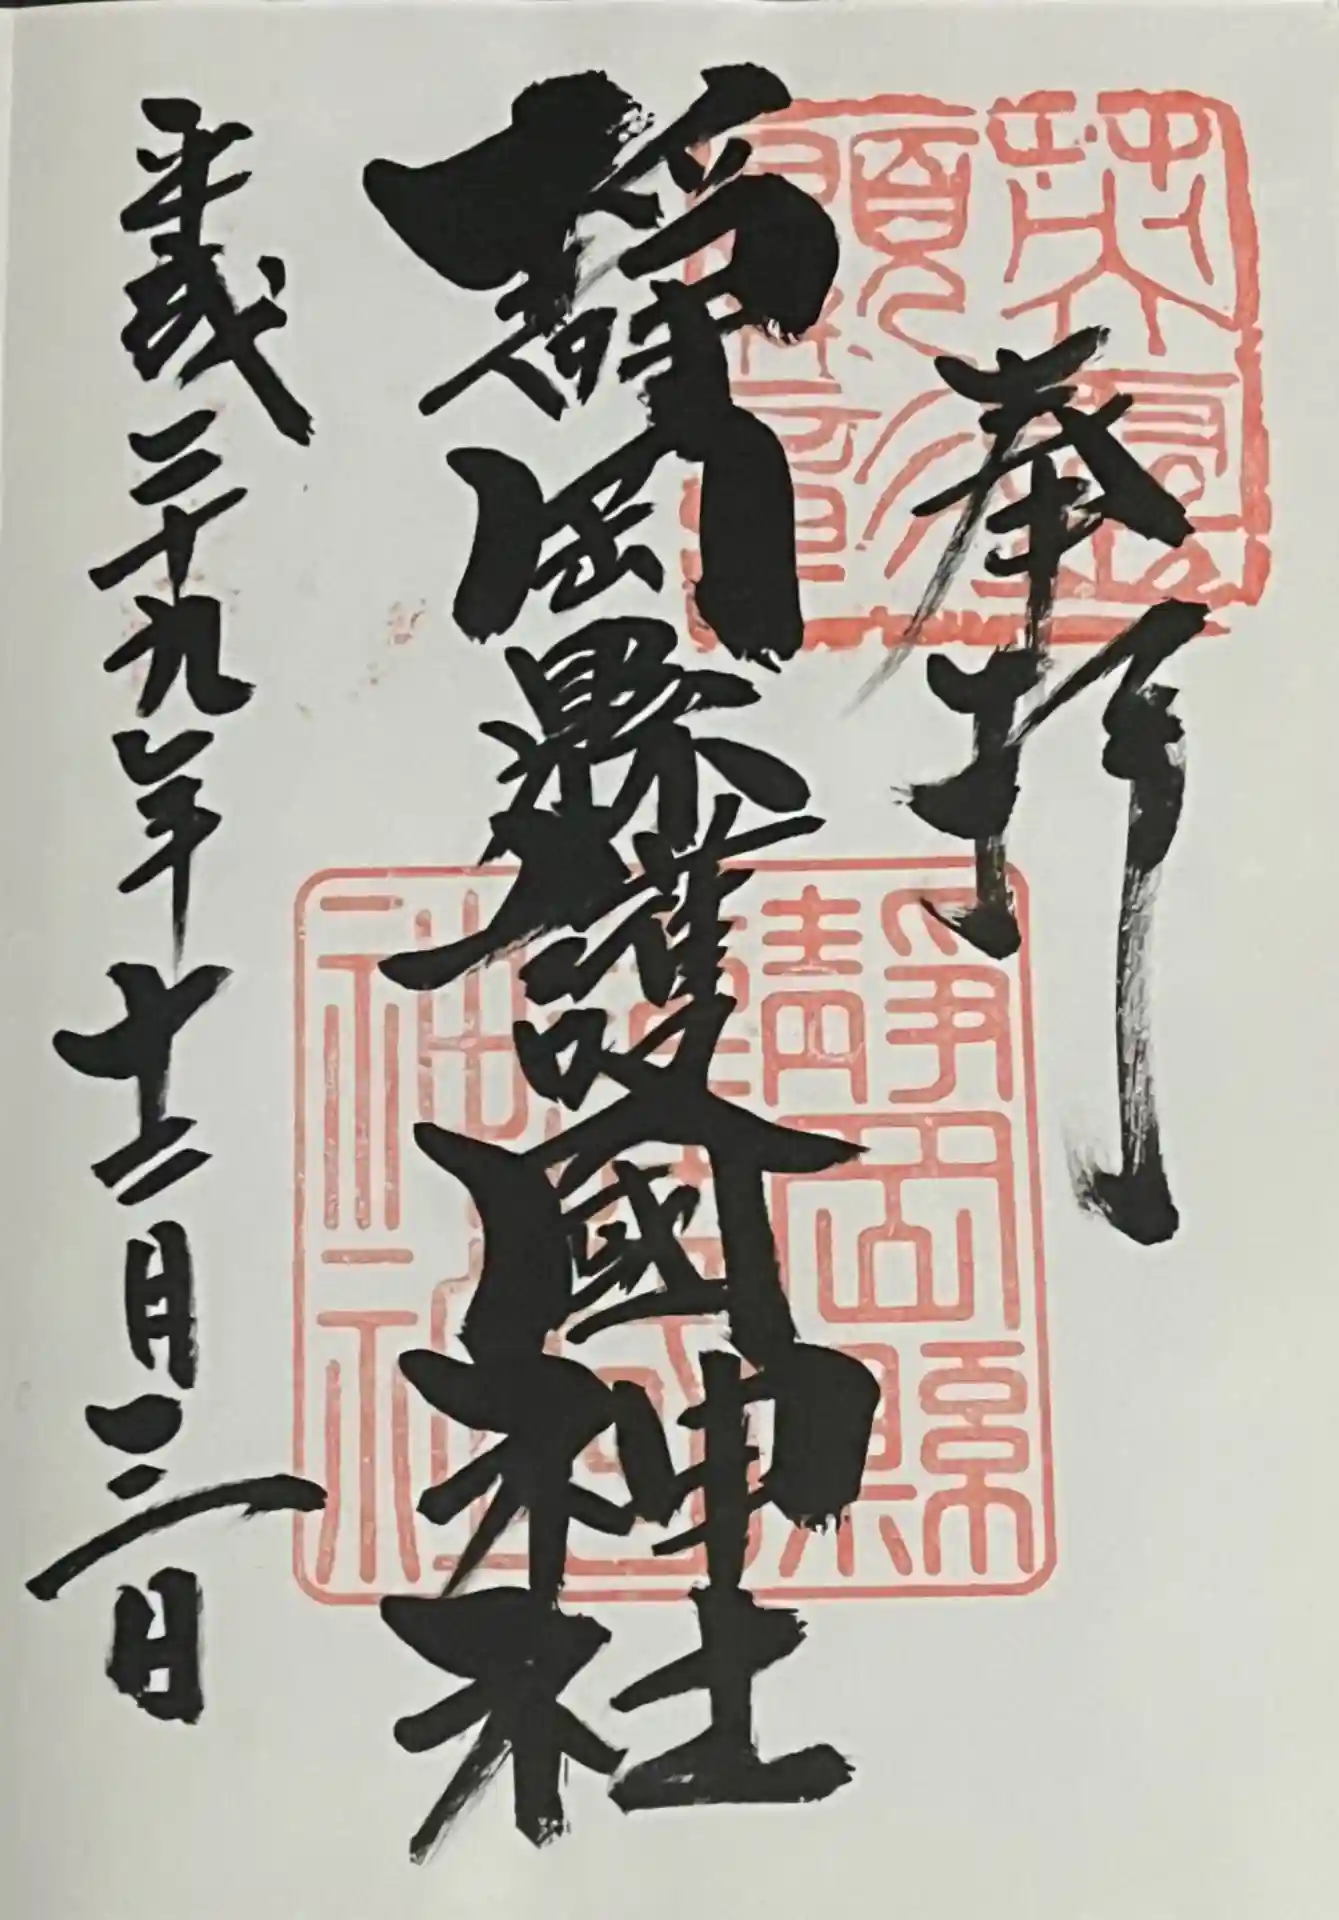 奉拝
靜岡縣護國神社
平成二十九年十二月三日
靜岡縣護國神社